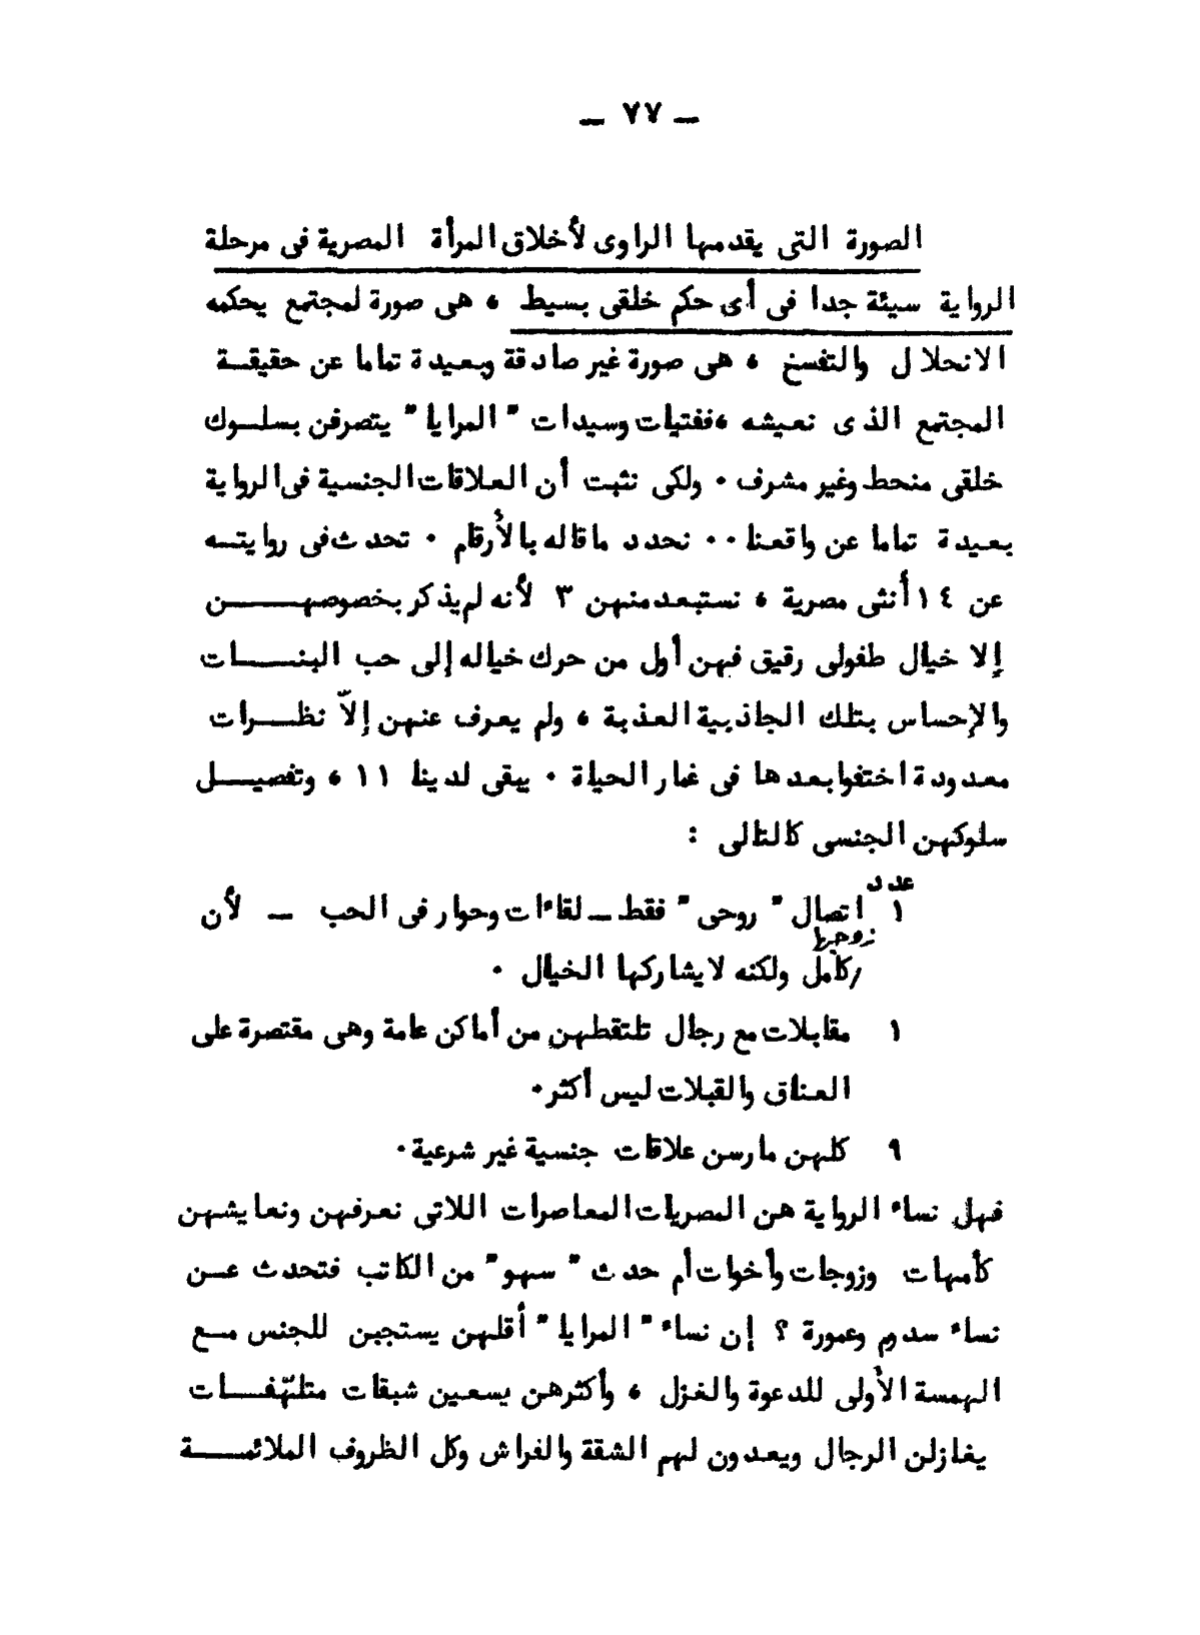 — ٧٧ —
الصورة التى يقدمها الراوى لأخلاق المرأة المصرية فى مرحلة
الرواية سيئة جدا فى أى حكم خلقى بسيط ، هى صورة لمجتمع يحكمه
الانحلال والتفسخ ، هى صورة غير صادقة وبعيدة تماما عن حقيقــة
المجتمع الذى نعيشه ،ففتيات وسيدات " المرايا " يتصرفن بسلــوك
خلقى منحط وغير مشرف ٠ ولكى نثبت أن العلاقات الجنسية فى الرواية
بعيدة تماما عن واقعنا ٠٠ نحدد ماقاله بالأرقام ٠ تحدث فى روايتــه
عن ١٤ أنثى مصرية ، نستبعد منهن ٣ لأنه لم يذكر بخصوصهــــن
إلا خيال طفولى رقيق فهن أول من حرك خياله إلى حب البنــــات
والإحساس بتلك الجاذبية العذبة ، ولم يعرف عنهن إلاّ نظـــرات
معدودة اختفوا بعدها فى غمار الحياة ٠ يبقى لدينا ١١ ، وتفصيـــل
سلوكهن الجنسى كالتالى :
عدد
١ اتصال " روحى " فقط — لقاءات وحوار فى الحب — لأن
زوجها
/كامل ولكنه لا يشاركها الخيال ٠
١ مقابلات مع رجال تلتقطهن من أماكن عامة وهى مقتصرة على
العناق والقبلات ليس أكثر٠
٩ كلهن مارسن علاقات جنسية غير شرعية٠
فهل نساء الرواية هن المصريات المعاصرات اللاتى نعرفهن ونعايشهن
كأمهات وزوجات وأخوات أم حدث " سهو " من الكاتب فتحدث عــن
نساء سدوم وعمورة ؟ إن نساء " المرايا " أقلهن يستجبن للجنس مــع
الهمسة الأولى للدعوة والغزل ، وأكثرهن يسعين شبقات متلهّفــات
يغازلن الرجال ويعدون لهم الشقة والفراش وكل الظروف الملائمــــة